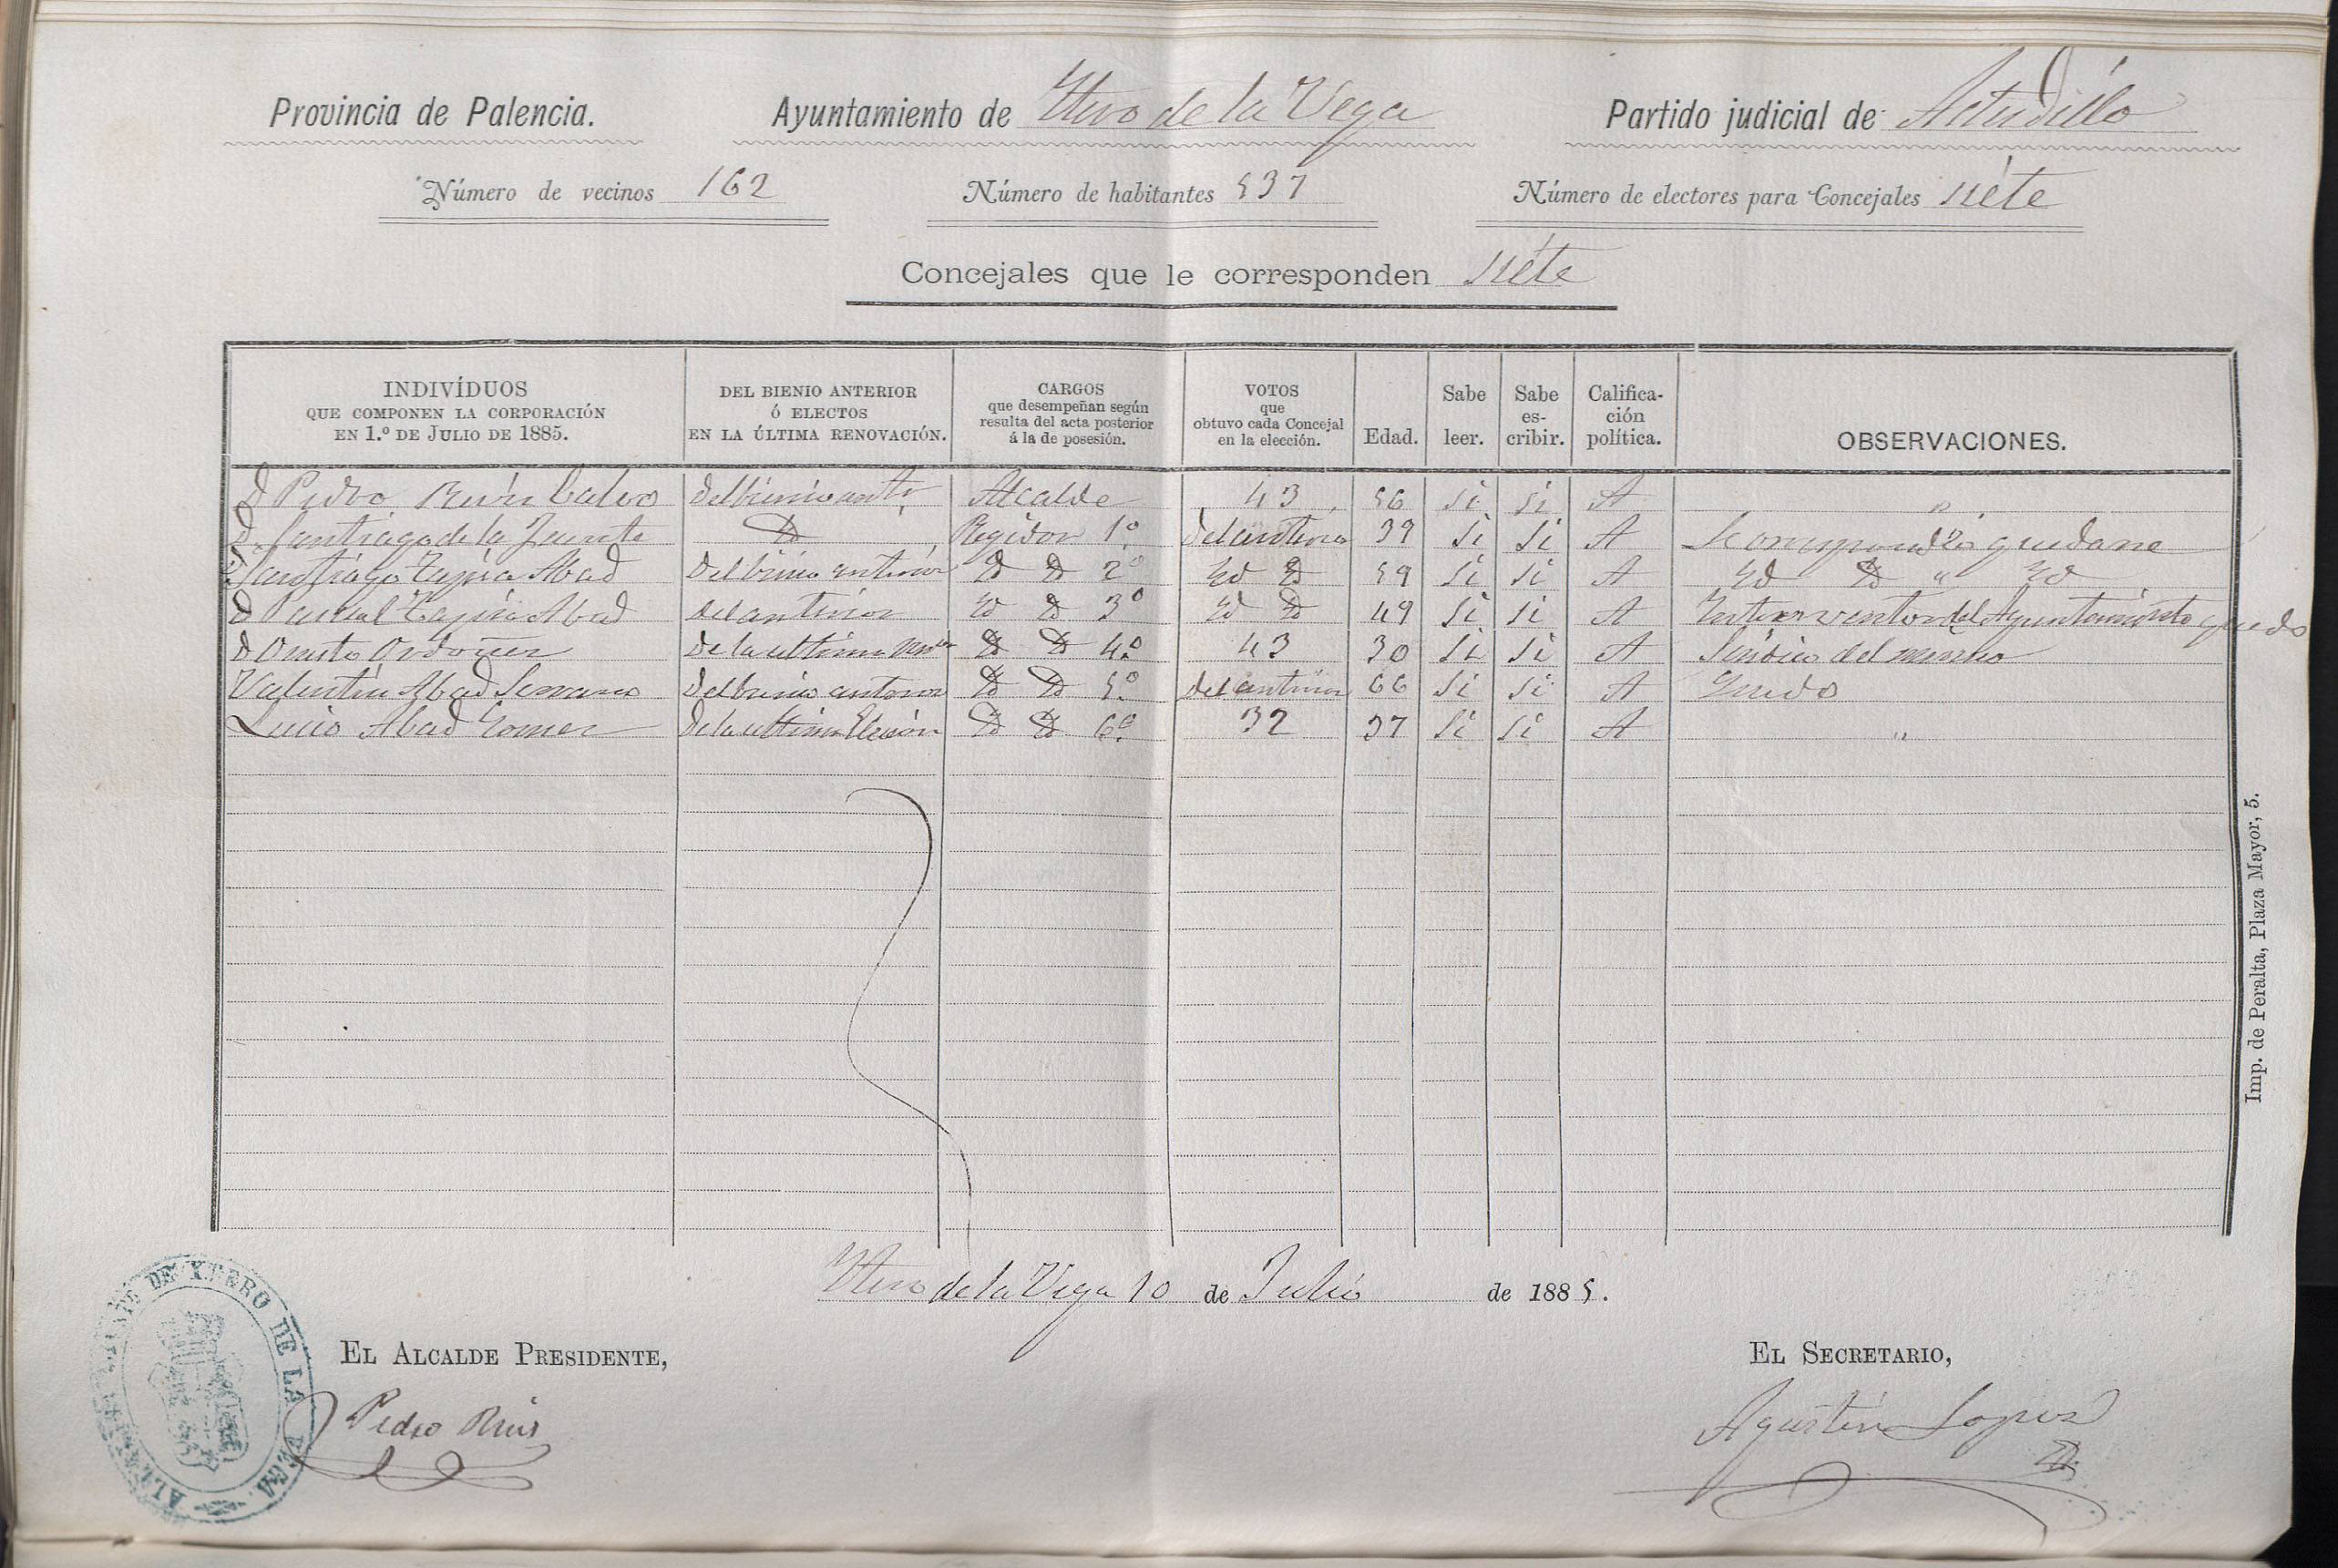 Provincia de Palencia. Ayuntamiento de Ytero de la Vega Partido judicial de Astudillo
Número de vecinos 162 Número de habitantes 537 Número de electores para Concejales siete
Concejales que le corresponden siete
INDIVÍDUOS QUE COMPONEN LA CORPORACIÓN EN 1.º DE JULIO DE 1885. DEL BIENIO ANTERIOR Ó ELECTOS EN LA ÚLTIMA RENOVACIÓN. CARGOS que desempeñan según resulta del acta posterior á la de posesión. VOTOS que obtuvo cada Concejal en la elección. Edad. Sabe leer. Sabe escribir. Calificación política. OBSERVACIONES.
D Pedro Ruiz Calvo del bienio antr. Alcalde 43 56 si si A "
D. Santiago de la Fuente Id Regidor 1º del anterior 39 si si A
D Santiago Tapia Abad Del bienio anterior Id Id 2º Id Id 59 si si A Id Id " Id
D Pascual Tapia Abad del anterior Id Id 3º Id Id 49 si si A Interventor del Ayuntamiento
D Onesto Ordoñez De la ultima Id Id 4º 43 30 si si A Sindico del mismo
Valentin Abad Serrano del bienio anterior Id Id 5º del anterior 66 si si A
Lucio Abad Gomez De la ultima Elección Id Id 6º 32 37 si si A "
Ytero de la Vega 10 de Julio de 1885.
EL ALCALDE PRESIDENTE, EL SECRETARIO,
Pedro Ruiz Agustin Lopez
DE YTERO DE LA VEGA
Imp. de Peralta, Plaza Mayor, 5.